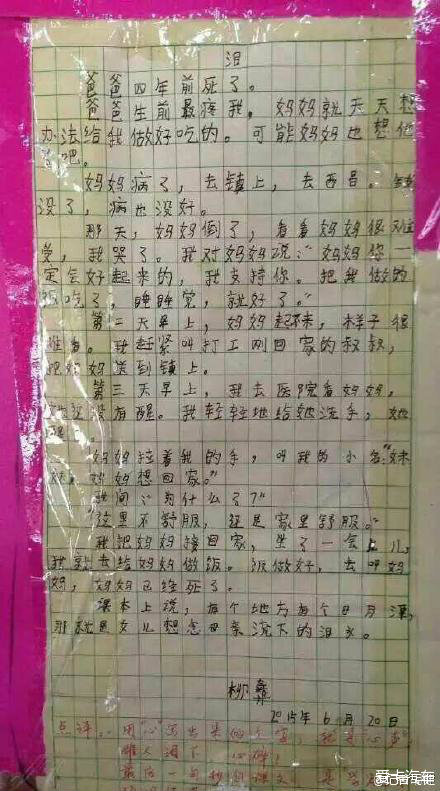 泪
爸爸四年前死了。
爸爸生前最疼我。妈妈就天天想
办法给我做好吃的。可能妈妈也想他
了吧。
妈妈病了,去镇上,去西昌。钱
没了,病也没好。
那天,妈妈倒了,看着妈妈很难
受,我哭了。我对妈妈说:“妈妈你一
定会好起来的,我支持你。把我做的
饭吃了,睡睡觉,就好了。”
第二天早上,妈妈起不来,样子很
难看。我赶紧叫打工刚回家的叔叔,
把妈妈送到镇上。
第三天早上,我去医院看妈妈,
她还没有醒。我轻轻地给她洗手,她
醒了。
妈妈拉着我的手,叫我的小名:“妹
妹,妈妈想回家。”
我问:“为什么了?”
“这里不舒服,还是家里舒服。”
我把妈妈接回家,坐了一会儿,
我就去给妈妈做饭。饭做好,去叫妈
妈,妈妈已经死了。
课本上说,有个地方有个日月潭,
那就是女儿想念母亲流下的泪水。
柳彝
2015年6月20日
点评:用“心”写出来的文字,就是“心声”
催人泪下 心碎!
最后一句
爱卡汽车